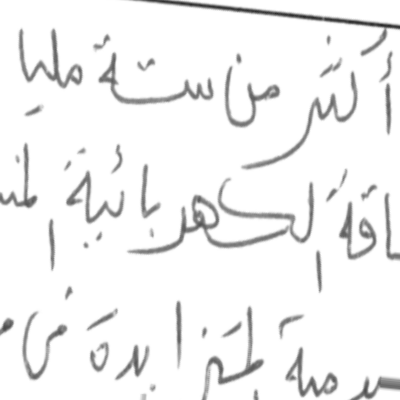 أكثر من ستة مليا
اقة الكهربائية المن
المتزايدة من